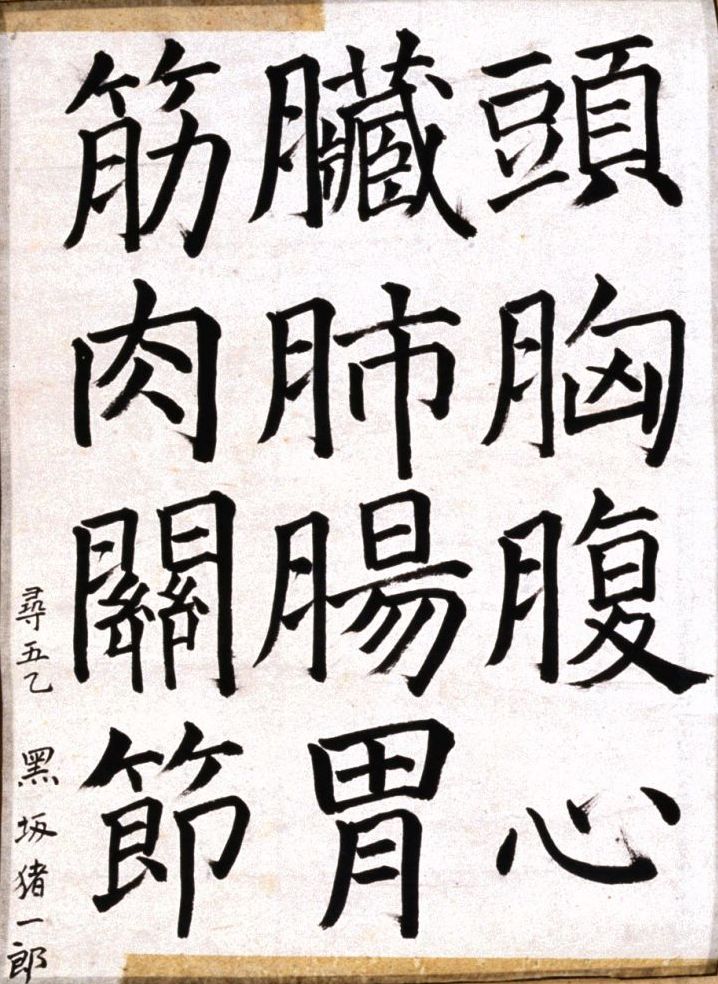 頭胸腹心
臓肺腸胃
筋肉關節
尋五乙 黑坂猪一郎